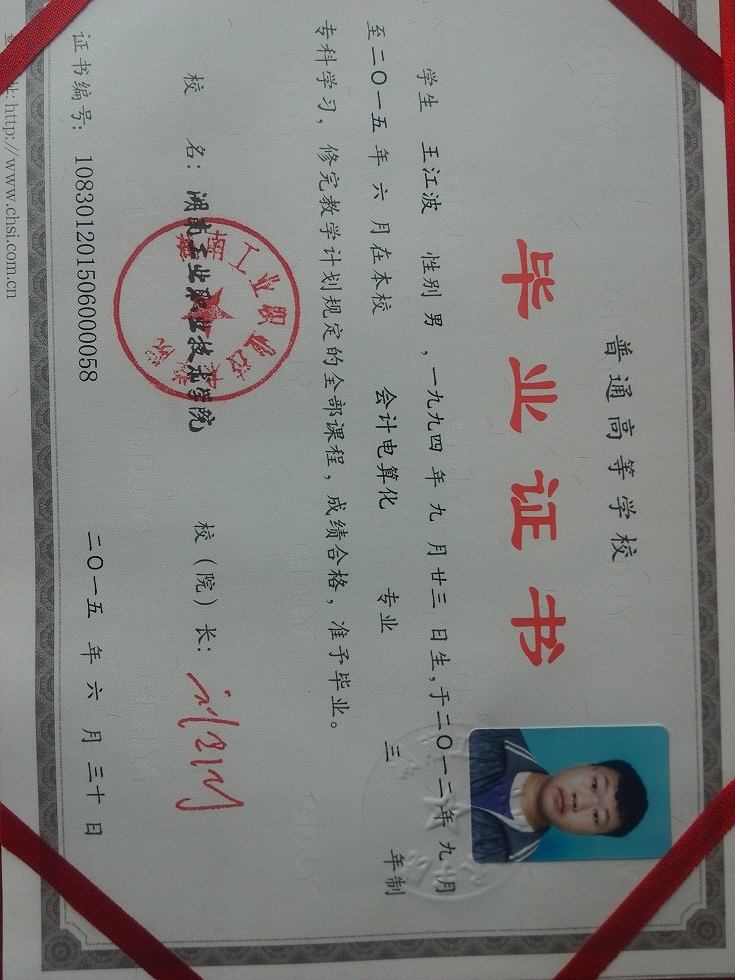 普通高等学校
毕业证书
学生 王江波 性别 男 ，一九九四 年 九 月 廿三 日生，于二〇一二年 九 月
至二〇一五 年 六 月在本校 会计电算化 专业 三 年制
专科学习，修完教学计划规定的全部课程，成绩合格，准予毕业。
校 名：湖南工业职业技术学院
校（院）长：
证书编号：108301201506000058
二〇一五 年 六 月 三十 日
http://www.chsi.com.cn